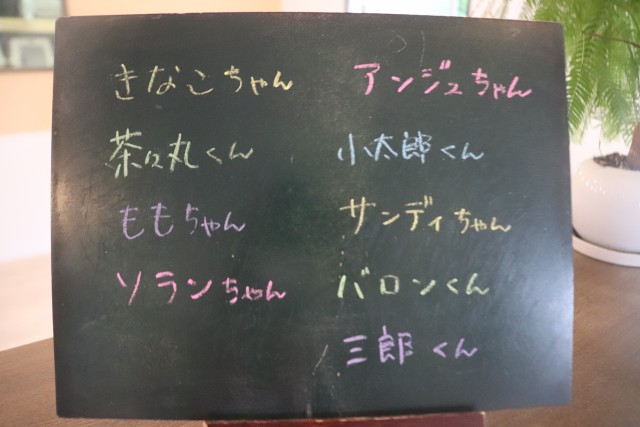 きなこちゃん
茶々丸くん
ももちゃん
ソランちゃん
アンジュちゃん
小太郎くん
サンディちゃん
バロンくん
三郎くん